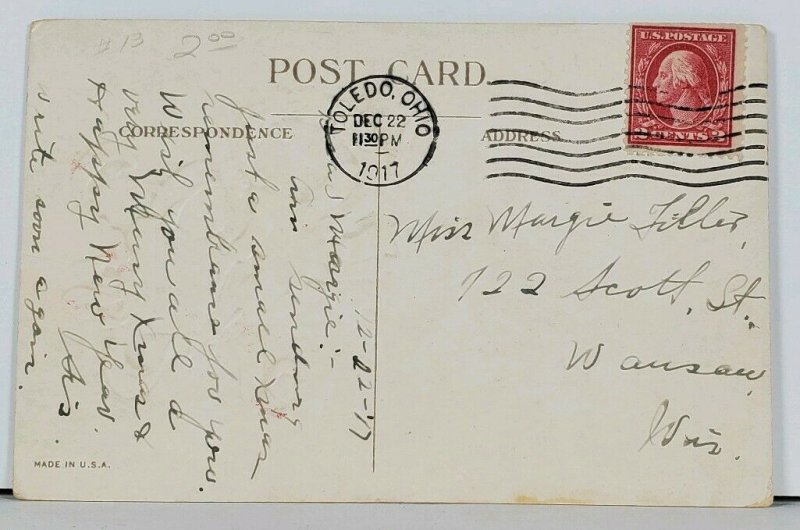 #13 2.00
POST CARD
CORRESPONDENCE
ADDRESS
TOLEDO, OHIO
DEC 22
1130 PM
1917
U.S. POSTAGE
2 CENTS 2
12-22-'17
Margie:-
Am sending
Just a small Xmas
remembrance for you.
Wish you all a
very Merry Xmas &
Happy New Year.
write soon again.
Miss Margie Tiller,
722 Scott, St.,
Wausau,
Wis.
MADE IN U.S.A.